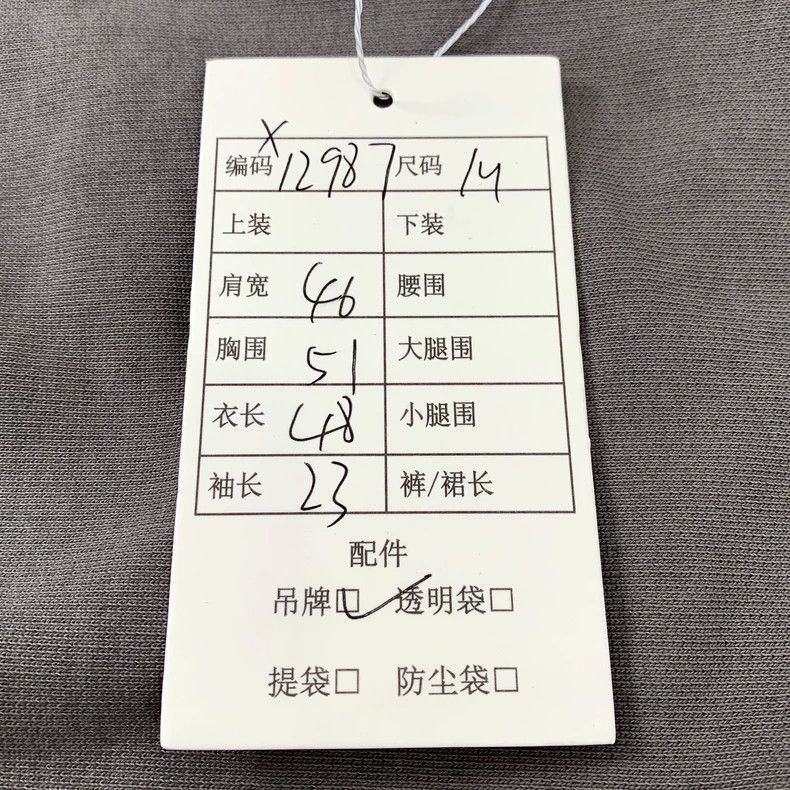 编码 X12987 尺码 14
上装 下装
肩宽 46 腰围
胸围 51 大腿围
衣长 48 小腿围
袖长 23 裤/裙长
配件
吊牌☑ 透明袋□
提袋□ 防尘袋□